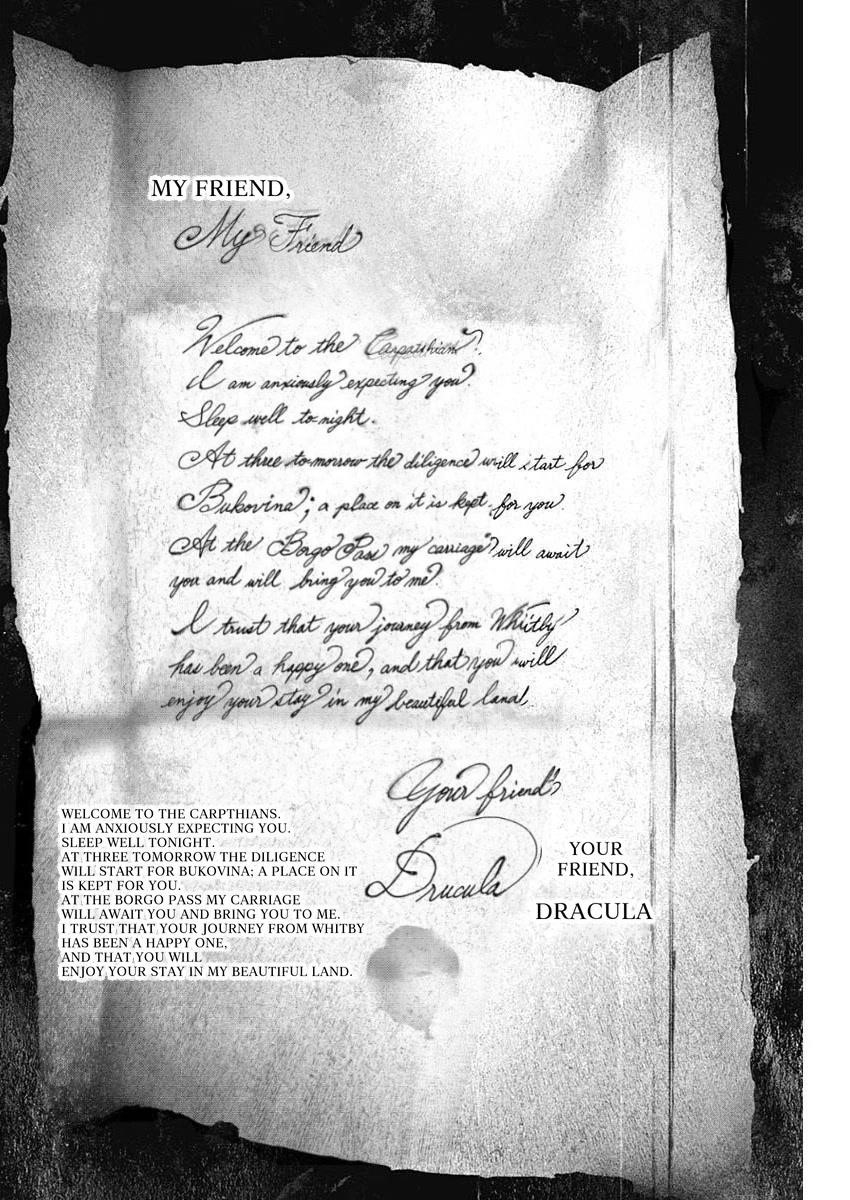 MY FRIEND,
My Friend
Welcome to the Carpathians.
I am anxiously expecting you.
Sleep well to-night.
At three to-morrow the diligence will start for
Bukovina; a place on it is kept for you.
At the Borgo Pass my carriage will await
you and will bring you to me.
I trust that your journey from Whitby
has been a happy one, and that you will
enjoy your stay in my beautiful land.
Your friend,
Dracula
WELCOME TO THE CARPTHIANS.
I AM ANXIOUSLY EXPECTING YOU.
SLEEP WELL TONIGHT.
AT THREE TOMORROW THE DILIGENCE
WILL START FOR BUKOVINA; A PLACE ON IT
IS KEPT FOR YOU.
AT THE BORGO PASS MY CARRIAGE
WILL AWAIT YOU AND BRING YOU TO ME.
I TRUST THAT YOUR JOURNEY FROM WHITBY
HAS BEEN A HAPPY ONE,
AND THAT YOU WILL
ENJOY YOUR STAY IN MY BEAUTIFUL LAND.
YOUR
FRIEND,
DRACULA